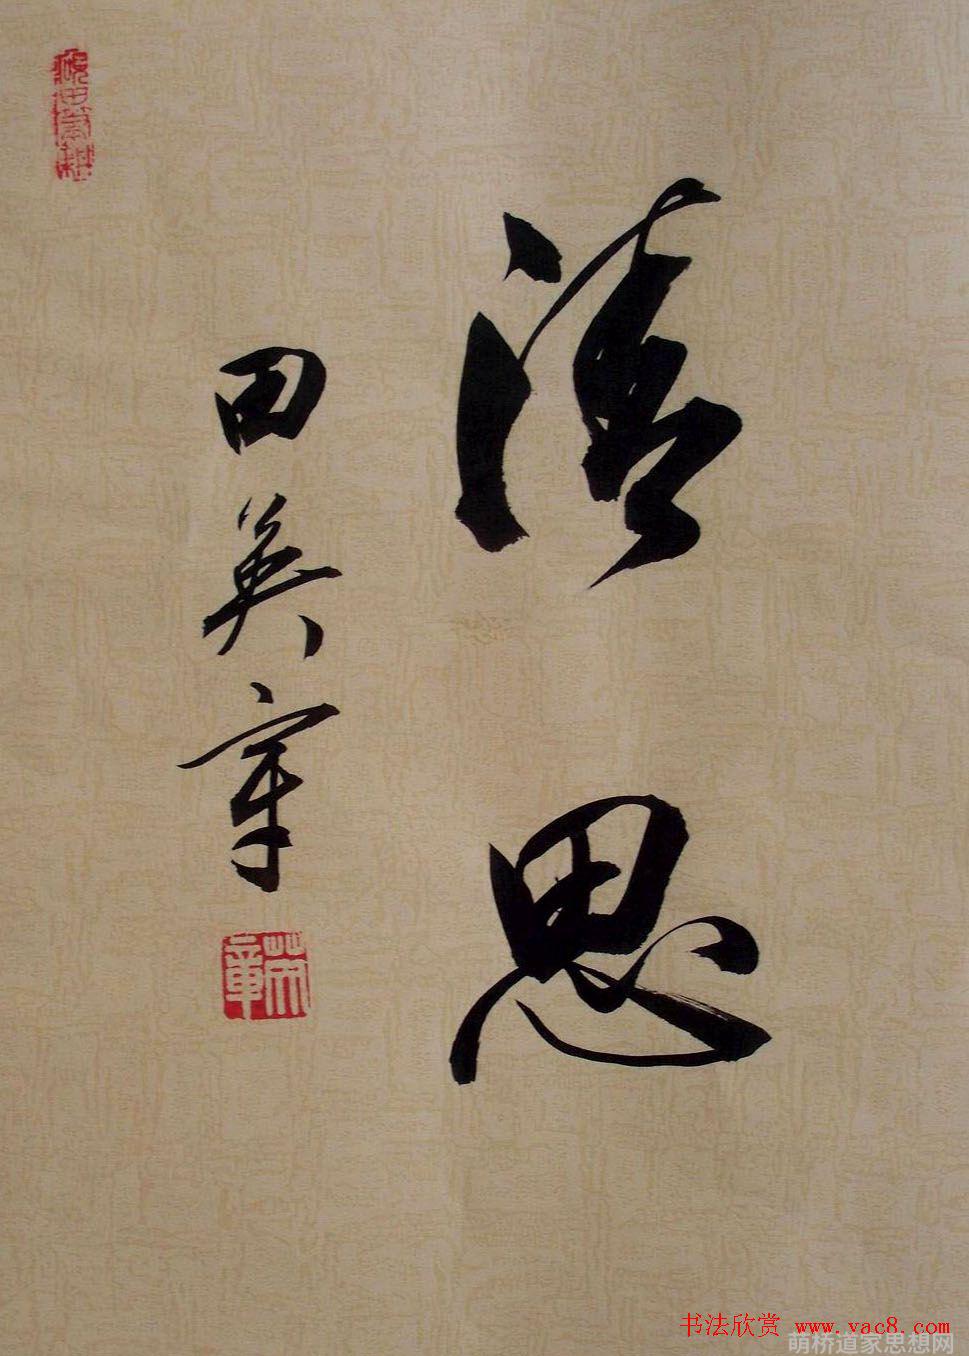 清思
田英章
英章
书法欣赏 www.yac8.com
萌桥道家思想网